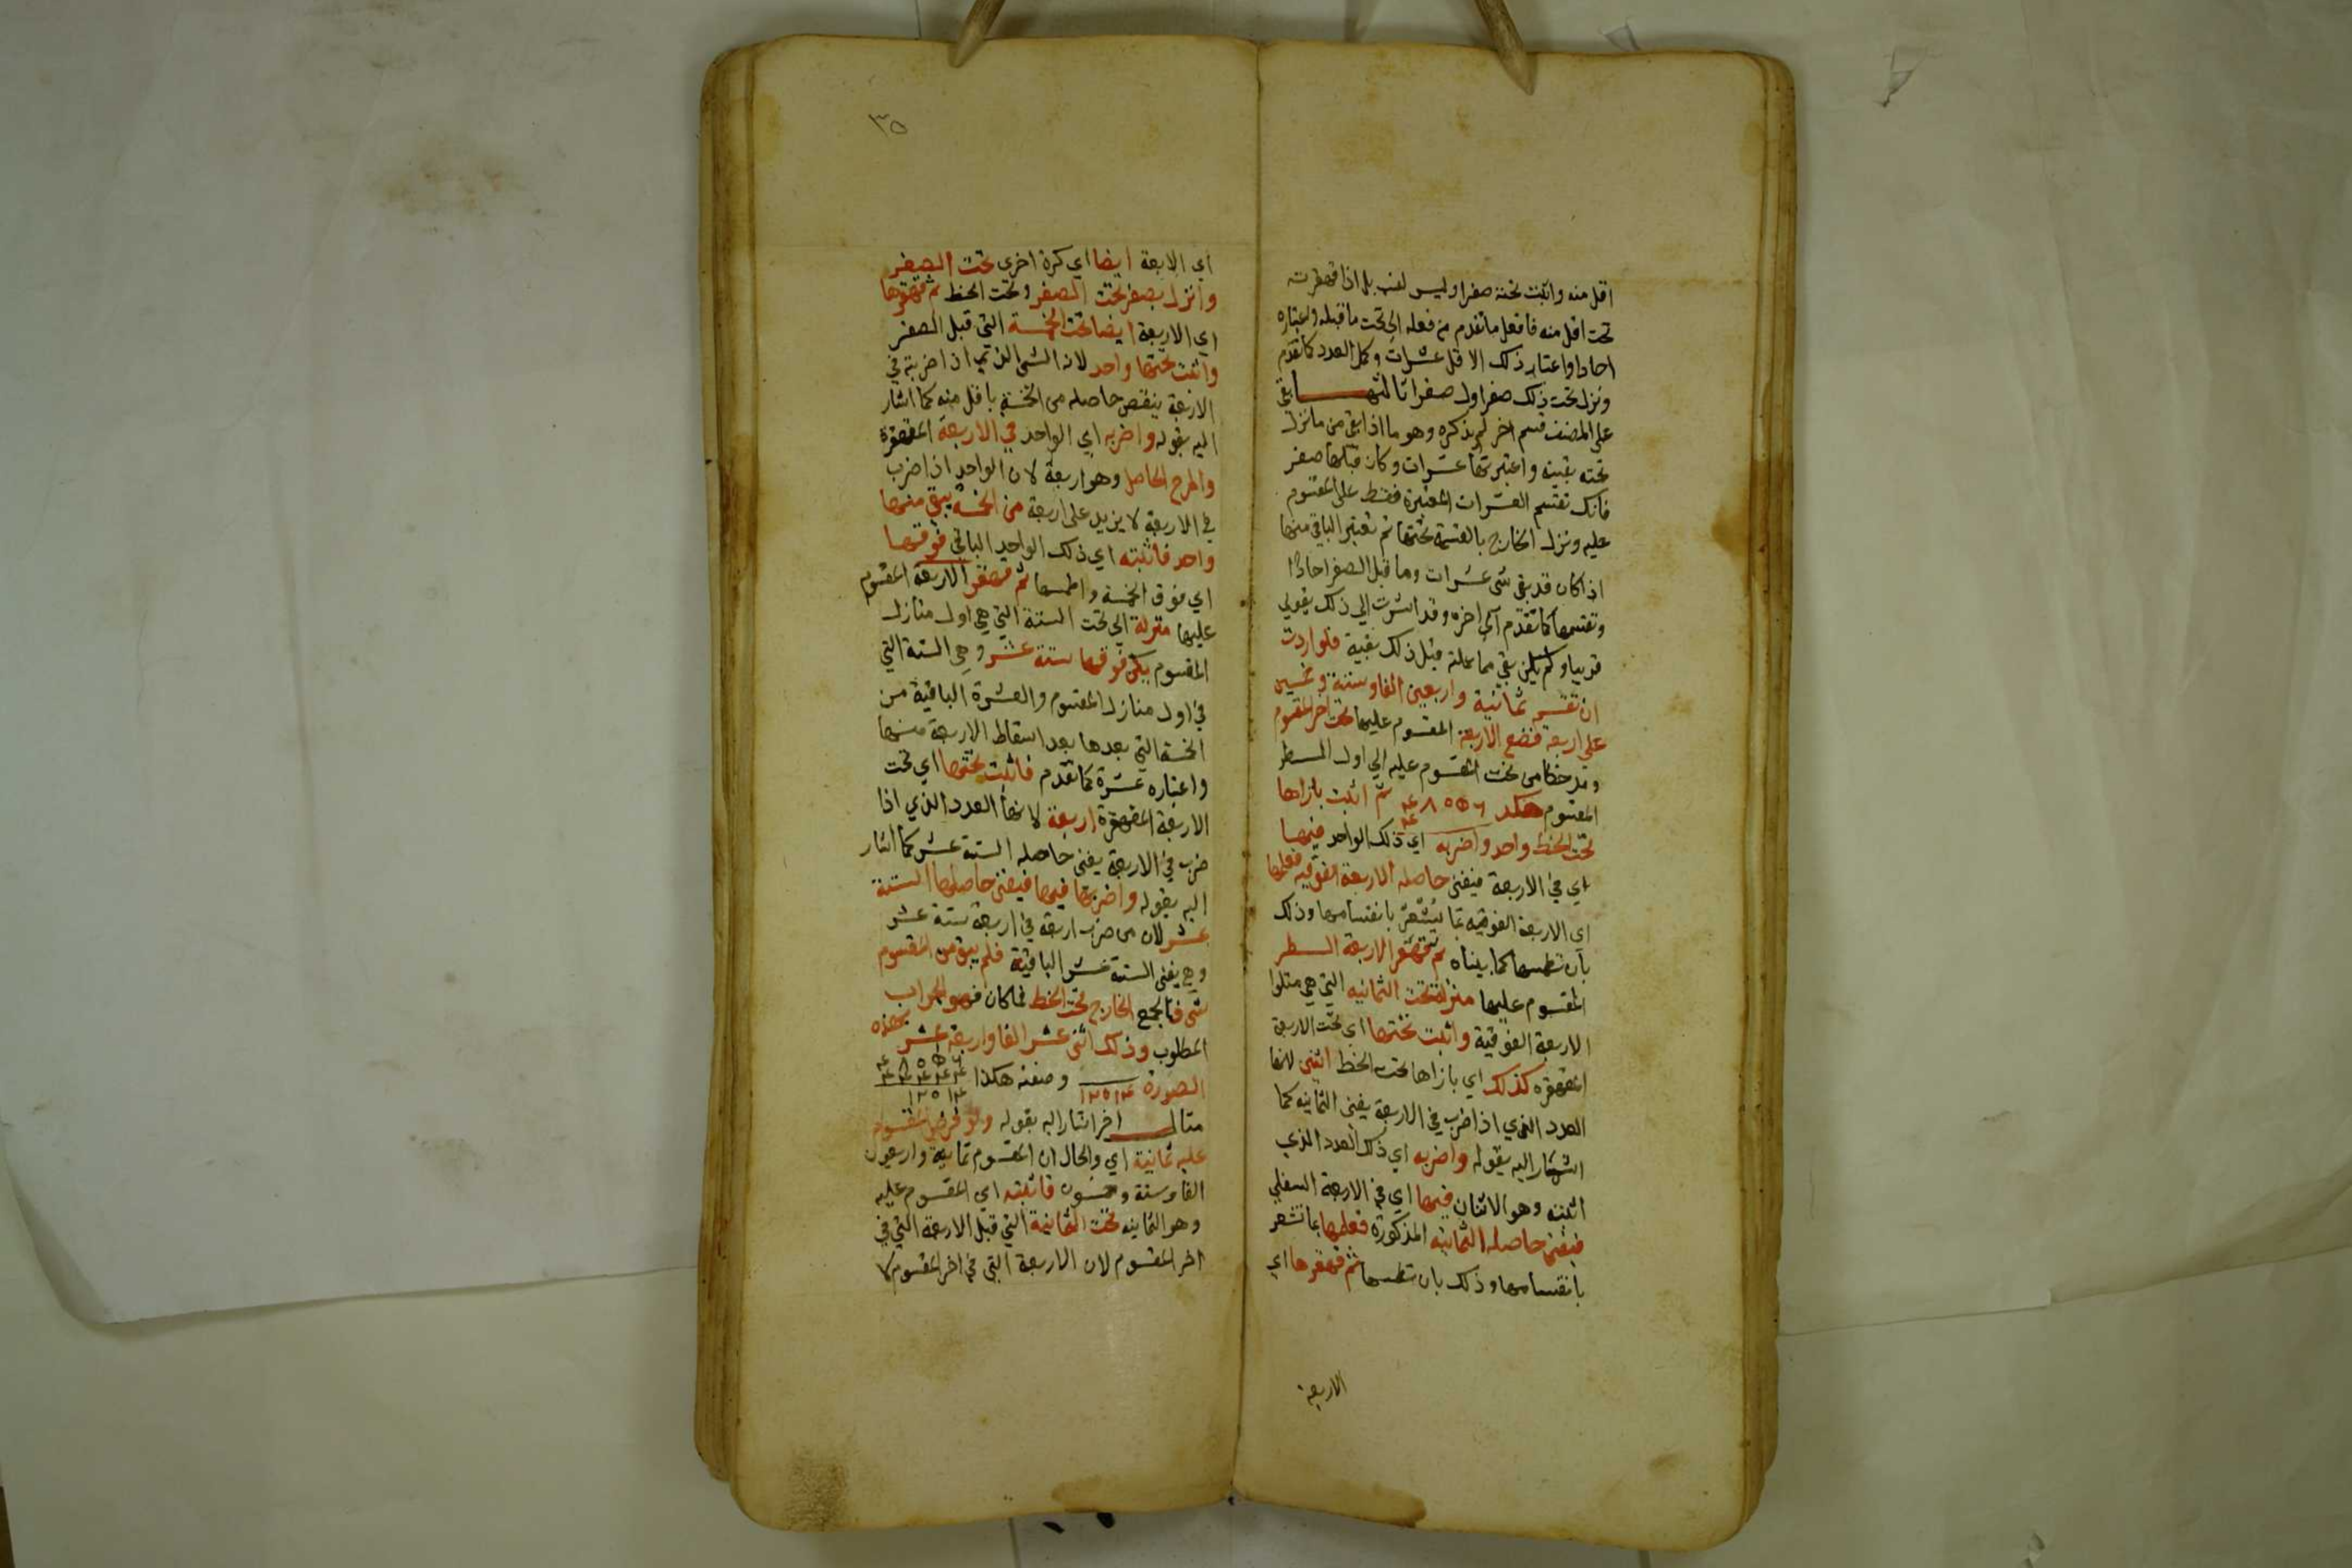 اقل منه واثبت تحته صفرا وليس لغيب بل اذا قهقرت
تحت اقل منه فافعل ما تقدم من فعله الى تحت ما قبله واعتباره
احادا واعتبار ذلك الاقل عشرات وكمل العدد كما تقدم
ونزل تحت ذلك صفرا ول صفرا ثالثها بقى
على المصنف قسم اخر لم يذكره وهو ما اذا بقي من ما نزلت
تحته بقية واعتبرتها عشرات وكان قبلها صفر
فانك تقسم العشرات المعتبرة فقط على المقسوم
عليه وتنزل الخارج بالقسمة تحتها ثم تعتبر الباقي منها
اذا كان قد بقى شى عشرات وما قبل الصفر احادا
وتقسمها كما تقدم الى اخره وقد اشرت الى ذلك بقولي
قريبا ولم يكن بقي مما عملته قبل ذلك بقية فلو اردت
ان تقسم ثمانية واربعين الفا وستة وخمسين
على اربعة فتضع الاربعة المقسوم عليها تحت اخر المقسوم
ومد خطا من تحت المقسوم عليه الى اول السطر
المقسوم هكذا ٤٨٠٥٦ ثم اثبت بازاها
٤
تحت الخط واحد واضربه اي ذلك الواحد فيها
اي في الاربعة فيفنى حاصله الاربعة الفوقيه فعلمها
اي الاربعة الفوقيه بما يشعر بانقسامها وذلك
بان تطمسها كما بيناه ثم تقهقر الاربعة السطر
المقسوم عليها منزلة تحت الثمانيه التي هي متلوا
الاربعة الفوقية واثبت تحتها اي تحت الاربعة
المقهقره كذلك اي بازاها تحت الخط اثنى لانها
العدد الذي اذا ضرب في الاربعة يفنى الثمانيه كما
اشار اليه بقوله واضربه اي ذلك العدد الذي
اثبته وهو الاثنان فيها اي في الاربعة السفلي
فيفنى حاصله الثمانية المذكورة فعلمها بما تشعر
بانقسامها وذلك بان تطمسها ثم قهقرها اي
الاربعة
٣٥
اي الاربعة ايضا اي كرة اخرى تحت الصفر
وانزل بصفر تحت الصفر وتحت الخط ثم قهقرها
اي الاربعة ايضا تحت الخمسة التي قبل الصفر
واثبت تحتها واحد لانه الشى الذي اذا ضربته في
الاربعة ينقص حاصله من الخمسة باقل منه كما اشار
اليه بقوله واضربه اي الواحد في الاربعة المقهقرة
واطرح الحاصل وهو اربعة لان الواحد اذا ضرب
في الاربعة لا يزيد على اربعة من الخمسة يبقى منها
واحد فاثبته اي ذلك الواحد الباقي فوقها
اي فوق الخمسة واطمسها ثم قهقر الاربعة المقسوم
عليها منزلة الى تحت الستة التي هي اول منازل
المقسوم يكن فوقها ستة عشر وهي الستة التي
في اول منازل المقسوم والعشرة الباقية من
الخمسة التي بعدها بعد اسقاط الاربعة منها
واعتباره عشرة كما تقدم فاثبت تحتها اي تحت
الاربعة المقهقرة اربعة لانها العدد الذي اذا
ضرب في الاربعة يفنى حاصله الستة عشر كما اشار
اليه بقوله واضربها فيها فيفنى حاصلها الستة
عشر لان من ضرب اربعة في اربعة ستة عشر
وهي يفنى الستة عشر الباقية فلم يبق من المقسوم
شى فاجمع الخارج تحت الخط فما كان فهو الجواب
المطلوب وذلك اثنى عشر الفا واربعة عشر بهذه
الصورة ١٢٠١٤ وصفته هكذا ٤٨٠٥٦
٤٤٤٤٤
١٢٠١٤
مثال اخر اشار اليه بقوله ولو فرض المقسوم
عليه ثمانية اي والحال ان المقسوم ثمانية واربعون
الفا وستة وخمسون فاثبته اي المقسوم عليه
وهو الثمانيه تحت الثمانية التي قبل الاربعة التي في
اخر المقسوم لان الاربعة التي في اخر المقسوم لا